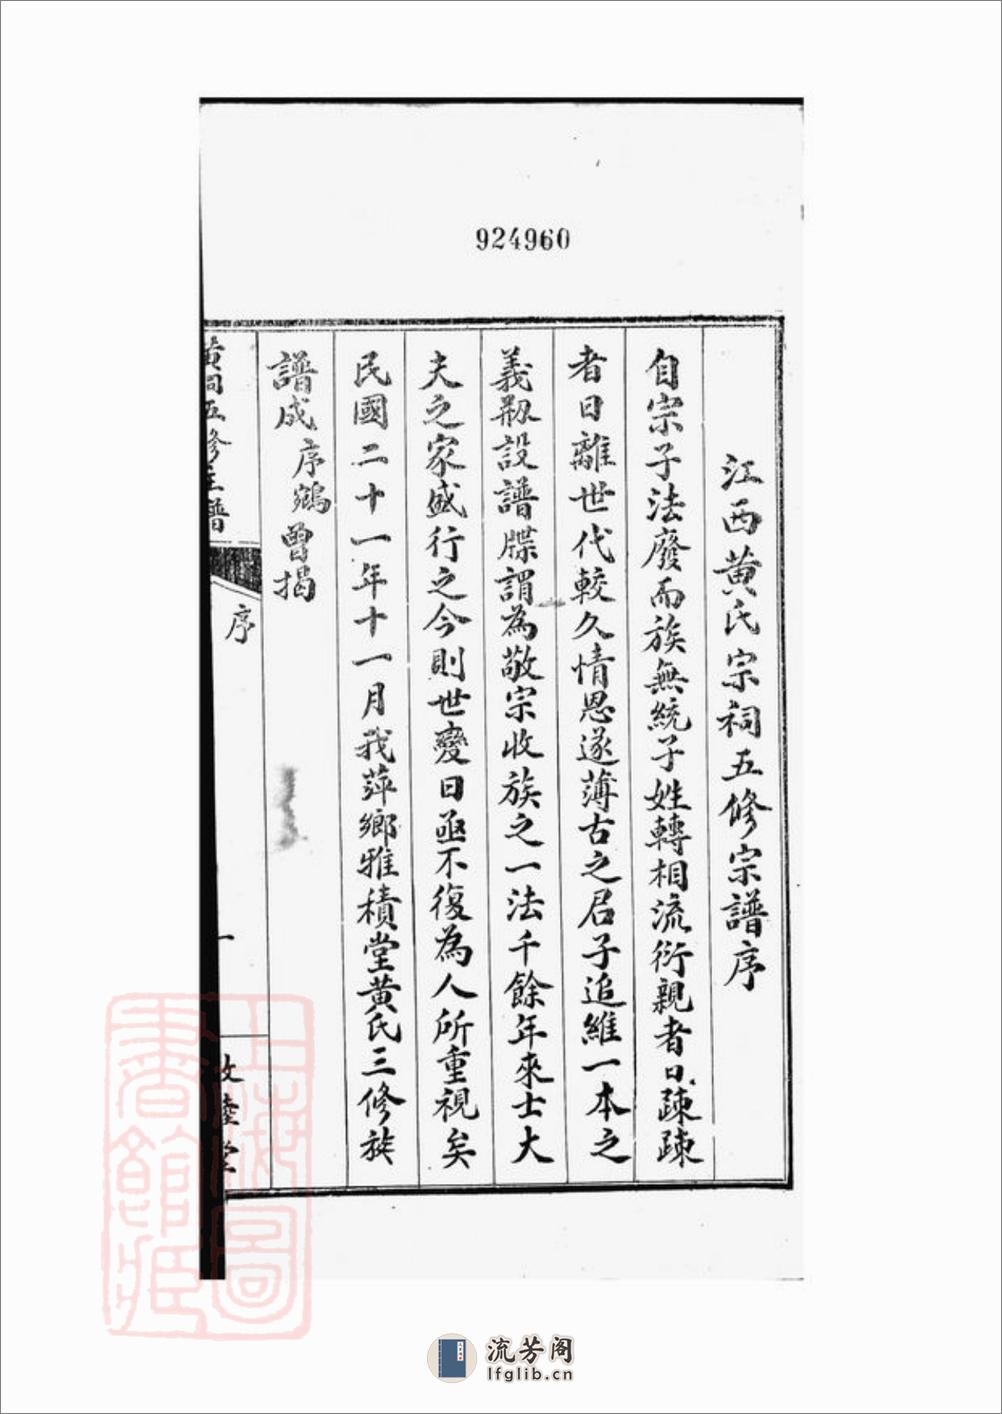 924960
江西黄氏宗祠五修宗譜序
自宗子法廢而族無統子姓轉相流衍親者日疎疎
者日離世代較久情恩遂薄古之君子追維一本之
義刱設譜牒謂為敬宗收族之一法千餘年來士大
夫之家盛行之今則世變日亟不復為人所重視矣
民國二十一年十一月我萍鄉雅積堂黄氏三修族
譜成序鵷曾揭
黄祠五修主譜
序
一
敦睦堂
上海圖書館藏
流芳阁
lfglib.cn